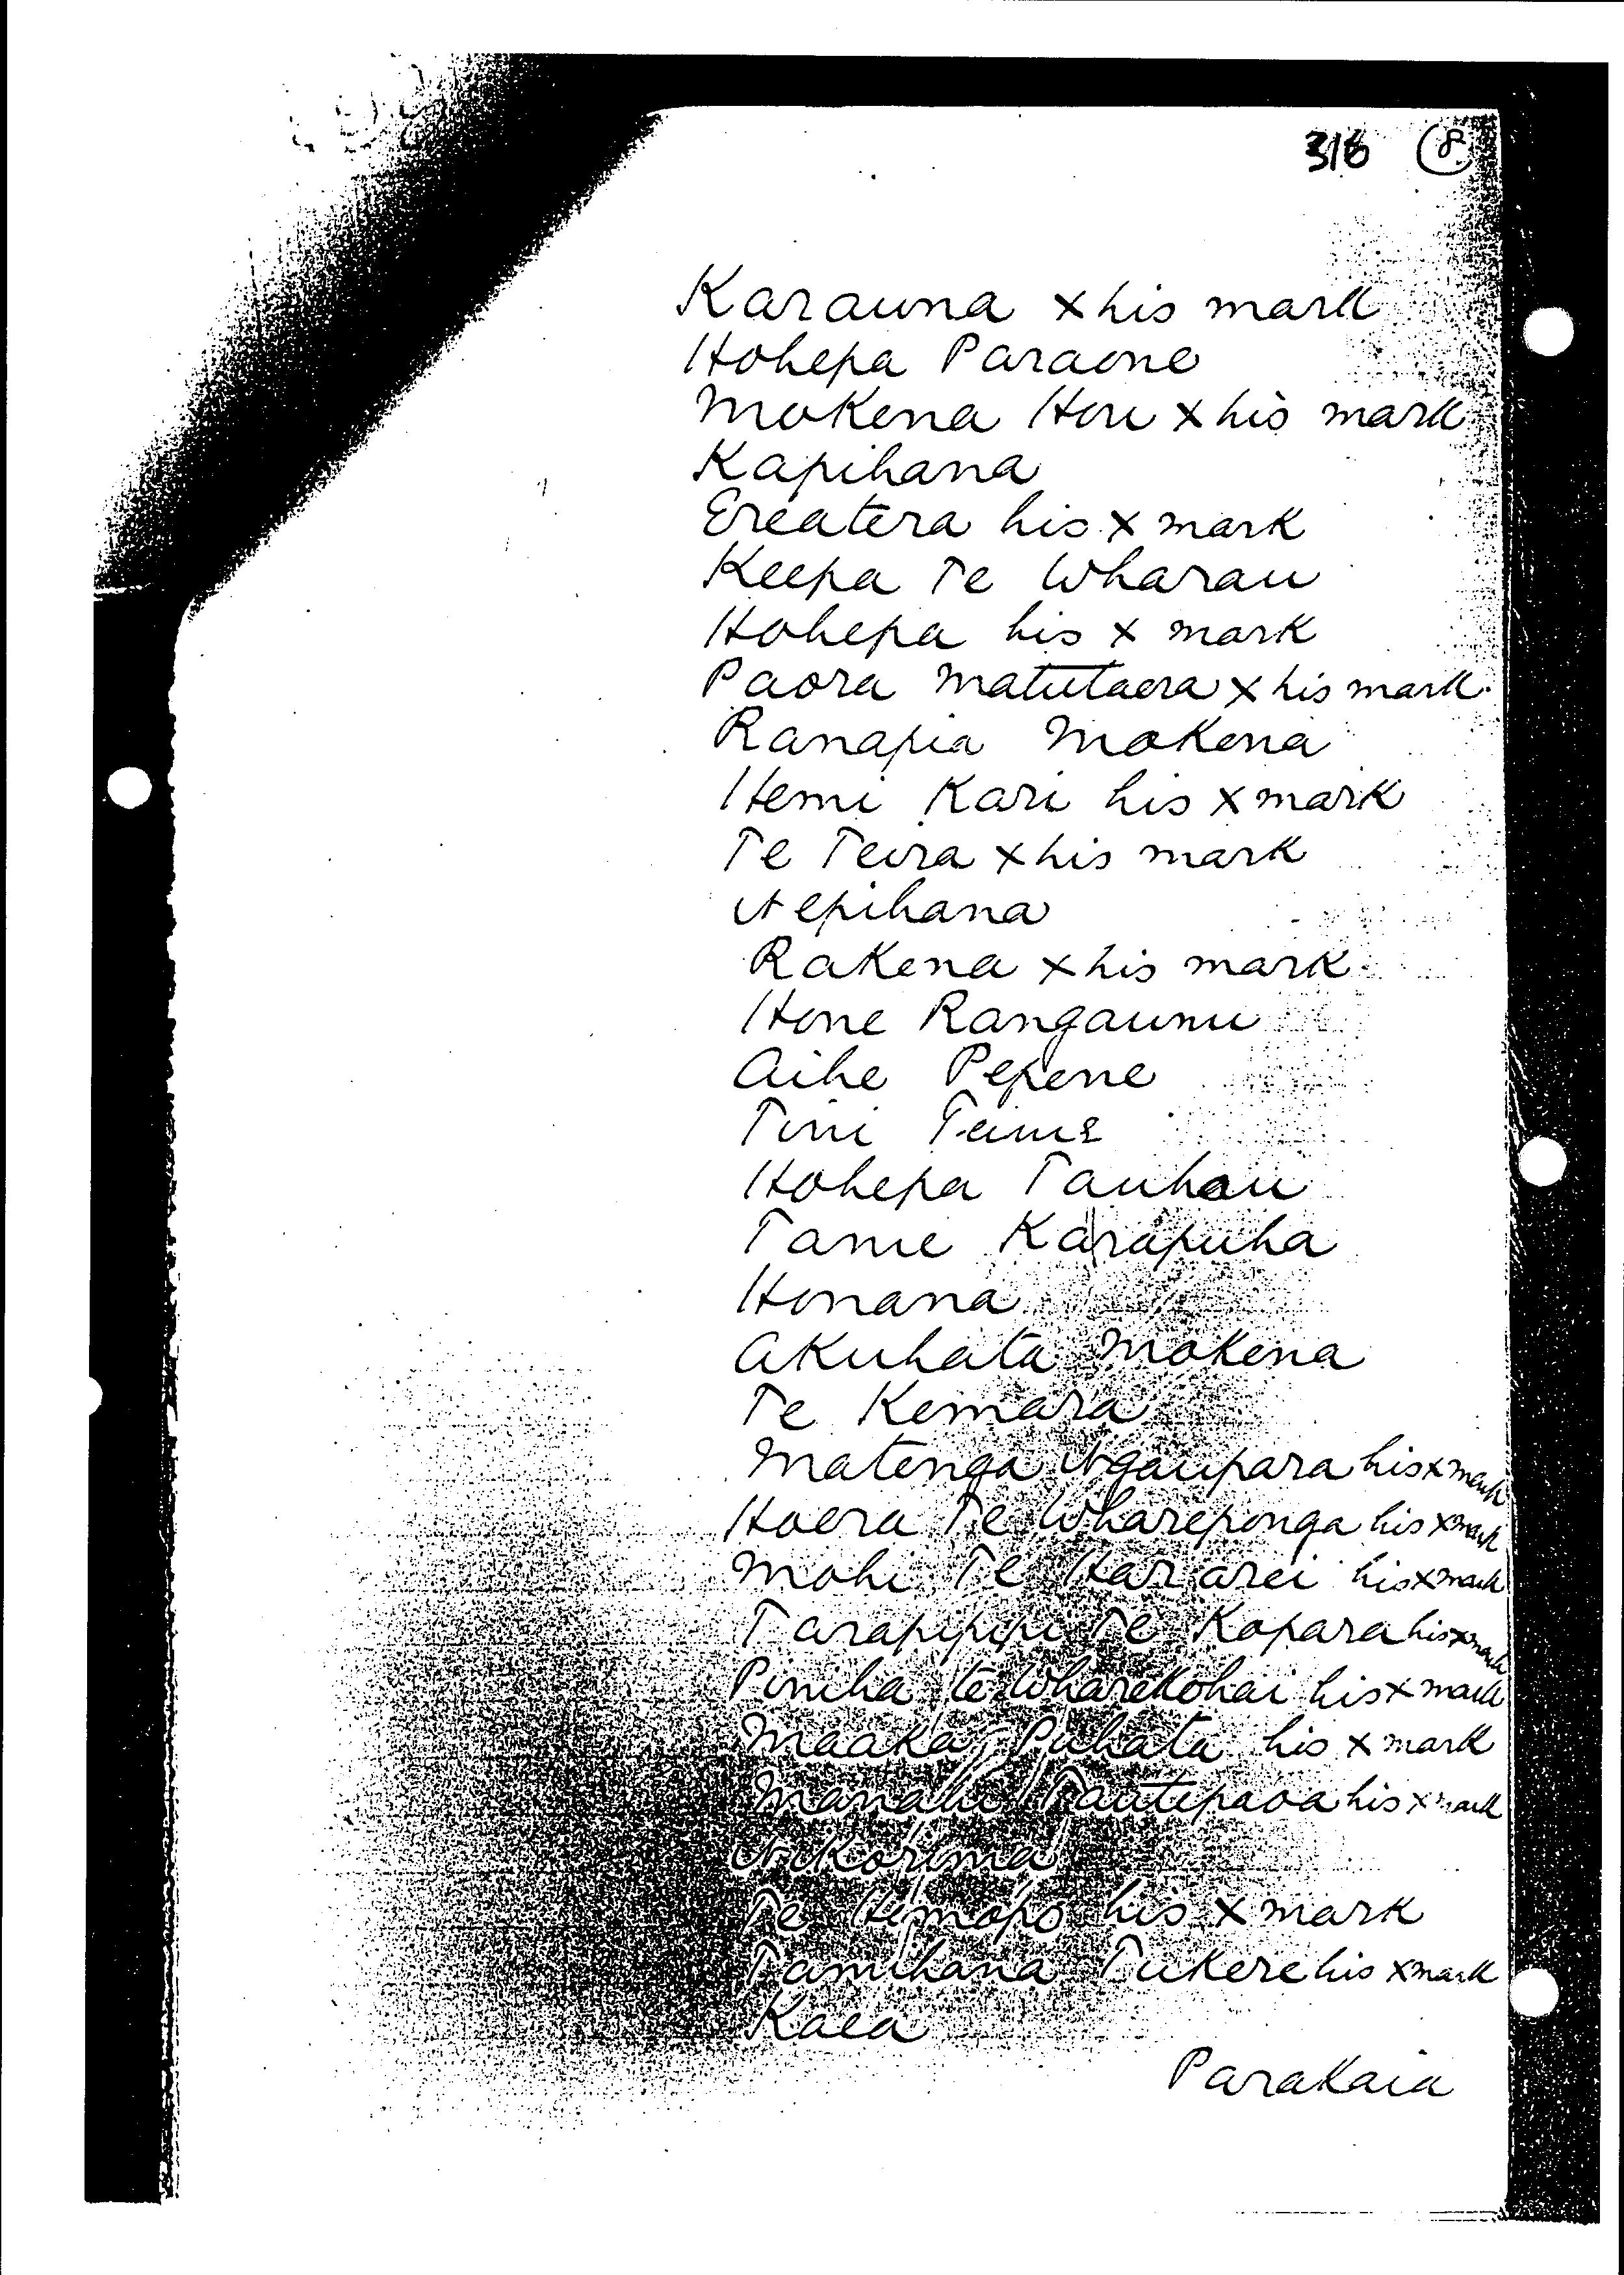 316 8
Karauna x his mark
Hohepa Paraone
Mokena Hou x his mark
Kapihana
Ereatera his x mark
Keepa Te Wharau
Hohepa his x mark
Paora Matutaera x his mark
Ranapia Mokena
Hemi Kari his x mark
Te Teira x his mark
Nepihana
Rakena x his mark
Hone Rangaunu
Aihe Pepene
Tini
Hohepa Tauhou
Tame Karapuha
Honana
Akuhata Mokena
Te Kemara
Matenga Ngaupara his x mark
Hoera Te Whareponga his x mark
Mohi Te Hararei his x mark
Tarapipipi Te Kopara his x mark
Piniha te Wharekohai his x mark
Maaka Puhata his x mark
Manahi Tautepaoa his x mark
Nikorima
Te Hemopo his x mark
Tamihana Tukere his x mark
Kaea
Parakaia